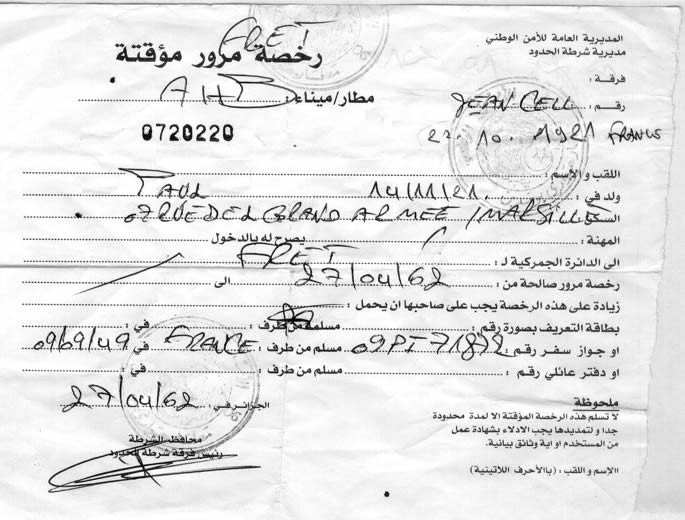 المديرية العامة للأمن الوطني
مديرية شرطة الحدود
FRET
رخصة مرور مؤقتة
فرقة :
مطار/ميناء : AHB
رقم : JEAN CELL
0720220
22. 10. 1921 FRANCS
اللقب والإسم :
ولد في : 14/11/21. PAUL
السكن 07 RUE DEL GRAND ARMEE / MARSILLES
المهنة : يصرح له بالدخول
الى الدائرة الجمركية لـ : FRET
رخصة مرور صالحة من : 27/04/62 الى
زيادة على هذه الرخصة يجب على صاحبها ان يحمل :
بطاقة التعريف بصورة رقم : مسلمة من طرف : في :
او جواز سفر رقم : 09PI71872 مسلم من طرف : FRANCE في : 09/09/49
او دفتر عائلي رقم : مسلم من طرف : في :
الجزائر في : 27/04/62
ملحوظة
لا تسلم هذه الرخصة المؤقتة الا لمدة محدودة
جدا و لتمديدها يجب الادلاء بشهادة عمل
من المستخدم او اية وثائق بيانية.
محافظ الشرطة
رئيس فرقة شرطة الحدود
الاسم و اللقب : (بالأحرف اللاتينية)